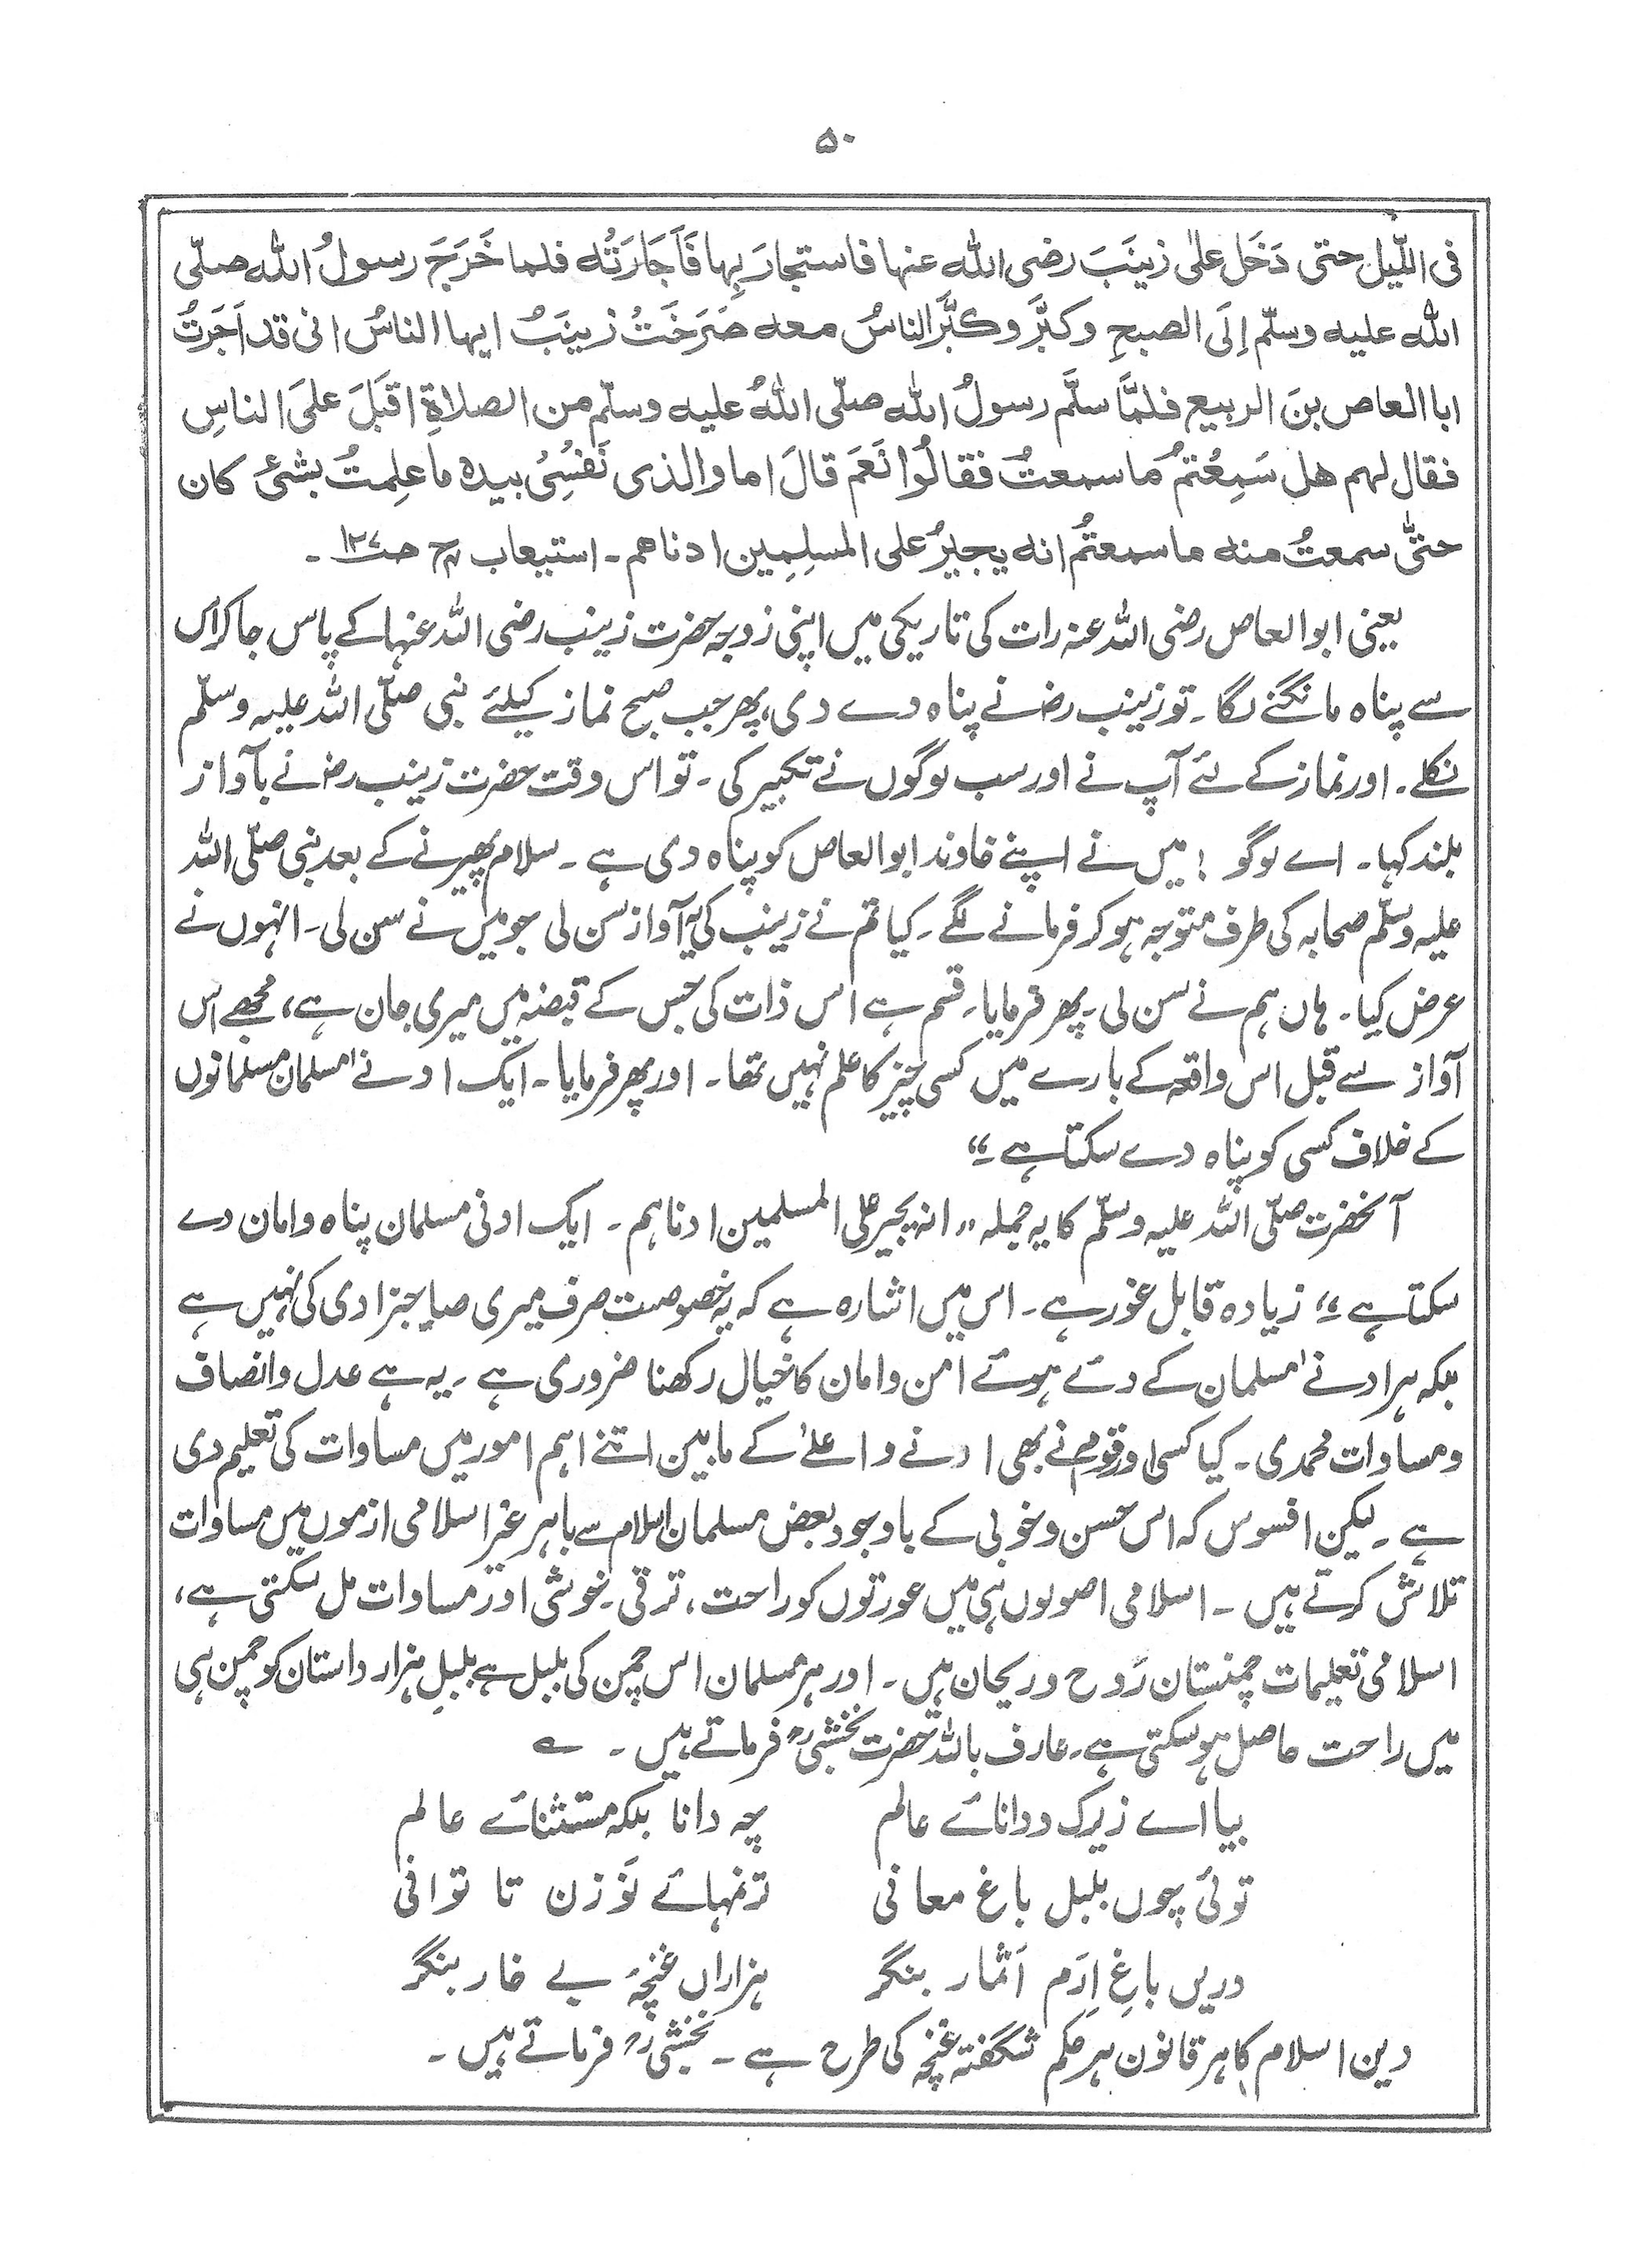 ۵۰
فی اللّیل حتی دَخَل علیٰ زینَبَ رضی الله عنہا فاستجارَ بِہا فَاَجَارَتْه فلما خَرَجَ رسولُ الله صلّی
الله علیه وسلّم اِلَی الصبحِ وکبَّر وکبَّر الناسُ معه صَرَخَتْ زینَبُ ایها الناسُ انی قد اَجَرتُ
ابا العاص بنَ الربیع فلمَّا سلَّم رسولُ الله صلّی اللهُ علیه وسلّم من الصلاةِ اقبَلَ علیَ الناسِ
فقال لهم هل سَمِعْتمُ ما سمعتُ فقالُوا نَعَم قالَ اما والذی نَفْسِیُ بیدہ ما علِمتُ بشئ کان
حتّٰی سمعتُ منه ما سمعتُم انه یجیرُ علی المسلِمِین ادناھم ـ استیعاب ج۴ ص۱۲۷ ـ
یعنی ابوالعاص رضی اللہ عنہ رات کی تاریکی میں اپنی زوجہ حضرت زینب رضی اللہ عنہا کے پاس جاکر اس
سے پناہ مانگنے لگا۔ تو زینب رضؓ نے پناہ دے دی، پھر جب صبح نماز کیلئے نبی صلّی اللہ علیہ وسلّم
نکلے۔ اور نماز کے لئے آپ نے اور سب لوگوں نے تکبیر کی۔ تو اس وقت حضرت زینب رضؓ نے بآواز
بلند کہا۔ اے لوگو ! میں نے اپنے خاوند ابوالعاص کو پناہ دی ہے۔ سلام پھیرنے کے بعد نبی صلّی اللہ
علیہ وسلّم صحابہ کی طرف متوجہ ہو کر فرمانے لگے۔ کیا تم نے زینب کی یہ آواز سن لی جو میں نے سن لی۔ انہوں نے
عرض کیا۔ ہاں ہم نے سن لی۔ پھر فرمایا۔ قسم ہے اس ذات کی جس کے قبضہ میں میری جان ہے، مجھے اس
آواز سے قبل اس واقعہ کے بارے میں کسی چیز کا علم نہیں تھا۔ اور پھر فرمایا۔ ایک ادنےٰ مسلمان مسلمانوں
کے خلاف کسی کو پناہ دے سکتا ہے۔“
آنحضرت صلّی اللہ علیہ وسلّم کا یہ جملہ ” انہ یجیر علی المسلمین ادناہم ۔ ایک ادنی مسلمان پناہ و امان دے
سکتا ہے۔“ زیادہ قابل غور ہے۔ اس میں اشارہ ہے کہ یہ خصوصیت صرف میری صاحبزادی کی نہیں ہے
بلکہ ہر ادنےٰ مسلمان کے دئے ہوئے امن و امان کا خیال رکھنا ضروری ہے۔ یہ ہے عدل و انصاف
و مساوات محمدی۔ کیا کسی اور قوم نے بھی ادنے و اعلےٰ کے مابین اتنے اہم امور میں مساوات کی تعلیم دی
ہے۔ لیکن افسوس کہ اس حسن و خوبی کے باوجود بعض مسلمان اسلام سے باہر غیر اسلامی ازموں میں مساوات
تلاش کرتے ہیں۔ اسلامی اصولوں ہی میں عورتوں کو راحت، ترقی۔ خوشی اور مساوات مل سکتی ہے،
اسلامی تعلیمات چمنستان رَوح و ریحان ہیں۔ اور ہر مسلمان اس چمن کی بلبل ہے بلبلِ ہزار داستان کو چمن ہی
میں راحت حاصل ہو سکتی ہے۔ عارف باللہ حضرت نخشبیؒ فرماتے ہیں۔ ؎
بیا اے زیرک و دانائے عالم چہ دانا بلکہ مستثنائے عالم
توئی چوں بلبل باغ معانی ترنمہائے نَو زن تا توانی
دریں باغِ اِرَم اَثمار بنگر ہزاراں غنچۂ بے خار بنگر
دین اسلام کا ہر قانون ہر حکم شگفتہ غنچہ کی طرح ہے۔ نخشبیؒ فرماتے ہیں۔